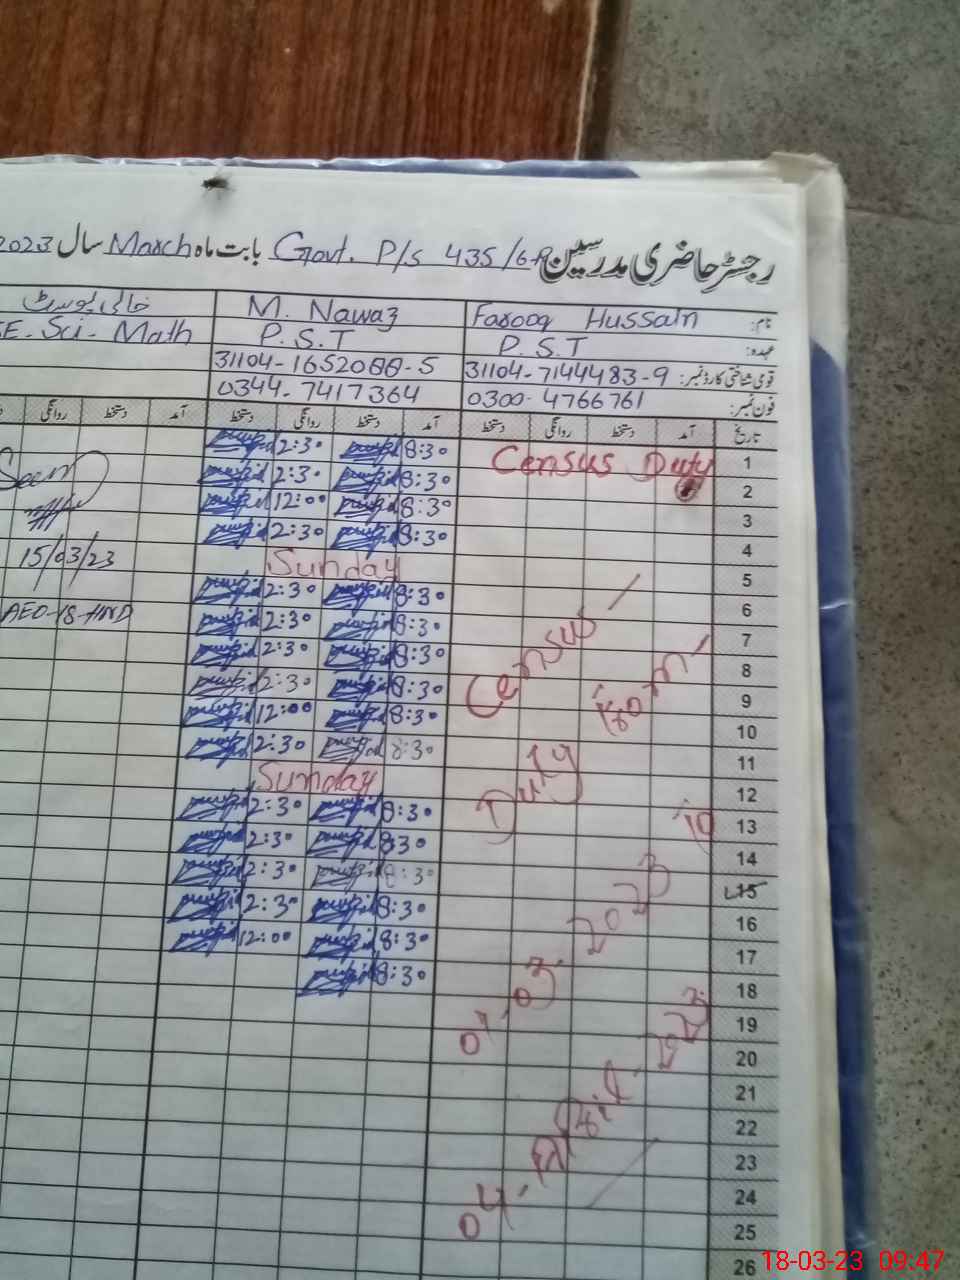 رجسٹر حاضری مدرسین Govt. P/s 435/6-R بابت ماہ March سال 2023
نام: Farooq Hussain M. Nawaz خالی پوسٹ
عہدہ: P.S.T P.S.T SE-Sci-Math
قومی شناختی کارڈ نمبر: 31104-7144483-9
فون نمبر: 0300-4766761 0344-7417364
تاریخ آمد دستخط روانگی دستخط آمد دستخط روانگی دستخط آمد دستخط روانگی
1 Census Duty 8:30 2:30
2 8:30 2:30 Seen
3 8:30 12:00
4 8:30 2:30 15/03/23
5 Sunday
6 8:30 2:30 AEO-18-HND
7 8:30 2:30
8 8:30 2:30
9 8:30 2:30
10 8:30 12:00
11 8:30 2:30
12 Sunday
13 8:30 2:30
14 830 2:30
15 8:30 2:30
16 8:30 2:30
17 8:30 12:00
18 8:30
19
20
21
22
23
24
25
26
Census -
Duty from -
01-03-2023 to
04-April-2023
18-03-23 09:47